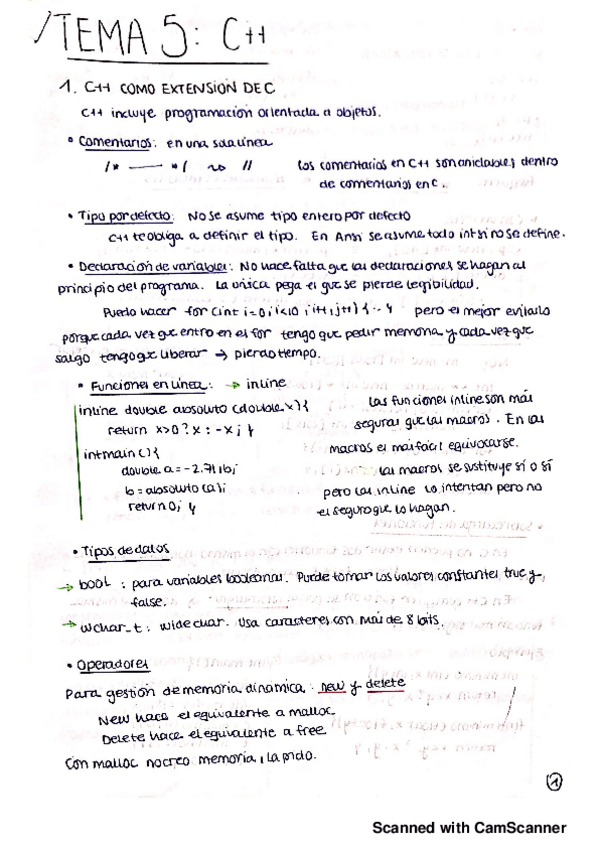 TEMA 5: C++
1. C++ COMO EXTENSION DE C
C++ incluye programación orientada a objetos.
• Comentarios: en una sola línea
/* —— */ ~ //
Los comentarios en C++ son anidables dentro
de comentarios en C.
• Tipo por defecto: No se asume tipo entero por defecto
C++ te obliga a definir el tipo. En Ansi se asume todo int si no se define.
• Declaración de variables: No hace falta que las declaraciones se hagan al
principio del programa. La única pega es que se pierde legibilidad.
Puedo hacer for (int i=0; i<10; i++, j++) { ·· } pero es mejor evitarlo
porque cada vez que entro en el for tengo que pedir memoria y cada vez que
salgo tengo que liberar → pierdo tiempo.
• Funciones en línea: → inline
inline double absoluto (double x) {
return x>0 ? x : -x; }
int main () {
double a = -2.71, b;
b = absoluto (a);
return 0; }
Las funciones inline son más
seguras que las macros. En las
macros es más fácil equivocarse.
Las macros se sustituye sí o sí
pero las inline lo intentan pero no
es seguro que lo hagan.
• Tipos de datos
→ bool : para variables booleanas. Puede tomar los valores constantes true y
false.
→ wchar_t : wide char. Usa caracteres con más de 8 bits.
• Operadores
Para gestión de memoria dinámica : new y delete
New hace el equivalente a malloc
Delete hace el equivalente a free
Con malloc no creo memoria, la pido.
1
Scanned with CamScanner